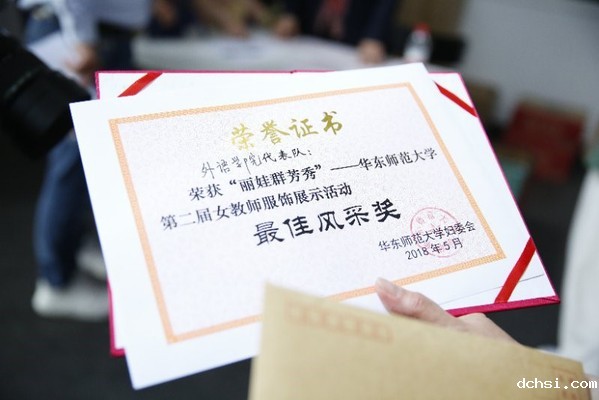 荣誉证书
外语学院代表队：
荣获“丽娃群芳秀”——华东师范大学
第二届女教师服饰展示活动
最佳风采奖
华东师范大学妇委会
2018年5月
dchsi.com